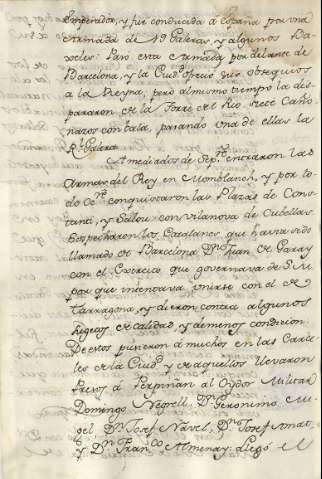 Emperador, y fue conducida á España por una
Armada de 19 Galeras, y algunos Ba-
xeles: Pasó esta Armada por delante de
Barcelona, y la Ciud. ofreció sus obsequios
a la Reyna, pero al mismo tiempo la des-
pararon de la Torre del Rio siete Caño-
nazos con bala, pasando una de ellas la
Rl. Galera.
A mediados de Sepre. entraron las
Armas del Rey en Monblanch, y por to-
do conquistaron las Plazas de Cons-
tanti, y Salou, con Vilanova de Cubellas.
Sospecharon los Catalanes, que havia sido
llamado de Barcelona Dn. Juan de Garay
con el Exercito que governava de
para que intentava unirse con el de
Tarragona, y dieron contra algunos
sugetos de calidad, y de menos condicion.
De estos pusieron á muchos en las Carce-
les de la Ciud. y de aquellos llevaron
presos á Perpiñan al Oydor Militar
Domingo Negrell, Dn. Geronimo
Dn. Josef Navel, Dn. Josef
y Dn. Franco. Almenay. Llegó el